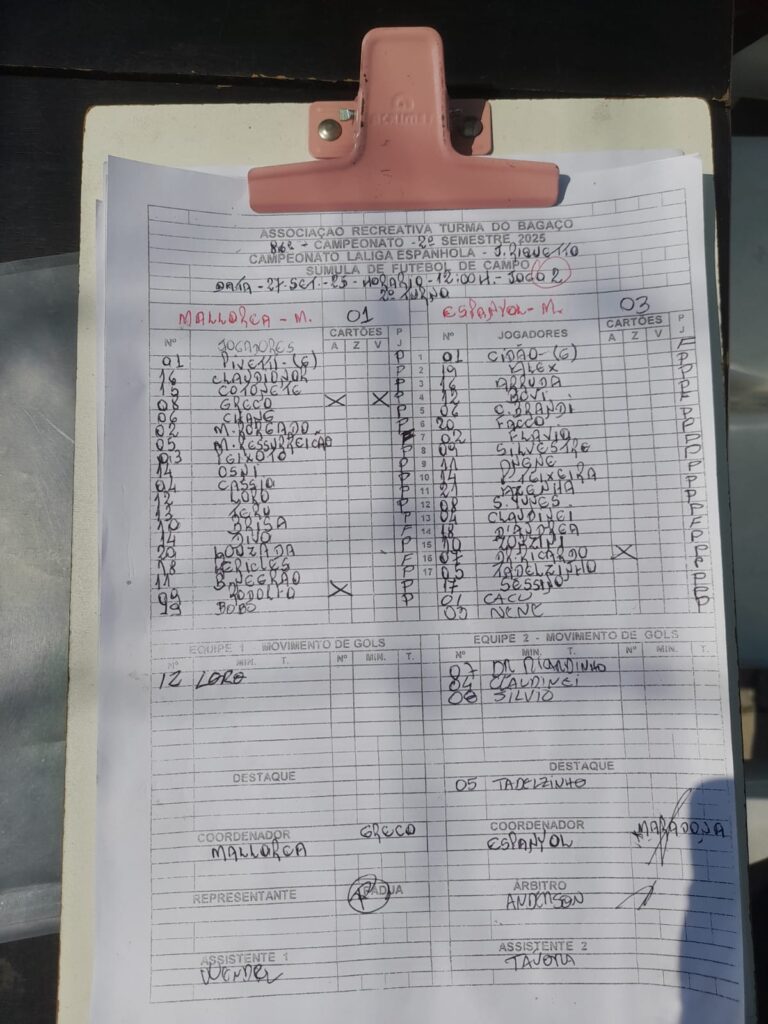 ASSOCIAÇAO RECREATIVA TURMA DO BAGAÇO
86º - CAMPEONATO - 2º SEMESTRE 2025
CAMPEONATO LALIGA ESPANHOLA - J. PIQUETTO
SÚMULA DE FUTEBOL DE CAMPO
DATA - 27-SET - 25 - HORARIO - 12:00H - JOGO 2
2º TURNO
MALLORCA - M. 01 ESPANYOL - M. 03
Nº JOGADORES CARTÕES A Z V P J Nº JOGADORES CARTÕES A Z V P J
01 PIVETTI - (G) P 1 01 CIDÃO - (G)
16 CLAUDIONOR P 2 19 ALEX P
15 COTONETE P 3 16 ARRUDA P
08 GRECO X X P 4 12 BOVI P
06 P 5 06 C. BRANDI P
02 P 6 20 FACCO P
05 M. RESSURREIÇÃO P 7 02 FLAVIO P
03 PEIXOTO P 8 09 SILVESTRE P
14 OSNI P 9 P
04 CASSIO P 10 14 TEIXEIRA P
12 LORO P 11 21 P
13 P 12 08 S. NUNES P
10 BRISA 13 04 CLAUDINEI
14 P 14 18
20 LOUZADA 15
18 PERICLES P 16 07 DR RICARDO X
11 B. NEGRÃO P 17 05 TADELZINHO P
99 RODOLFO X P 17
99 BOBO 01 CACU
03 NENE
EQUIPE 1 - MOVIMENTO DE GOLS EQUIPE 2 - MOVIMENTO DE GOLS
Nº MIN. T. Nº MIN. T. Nº MIN. T. Nº MIN. T.
12 LORO 07 DR RICARDINHO
04 CLAUDINEI
08 SILVIO
DESTAQUE DESTAQUE
05 TADELZINHO
COORDENADOR GRECO COORDENADOR MARADONA
MALLORCA ESPANYOL
REPRESENTANTE ÁRBITRO
ANDERSON
ASSISTENTE 1 ASSISTENTE 2
WENDEL TAVORA